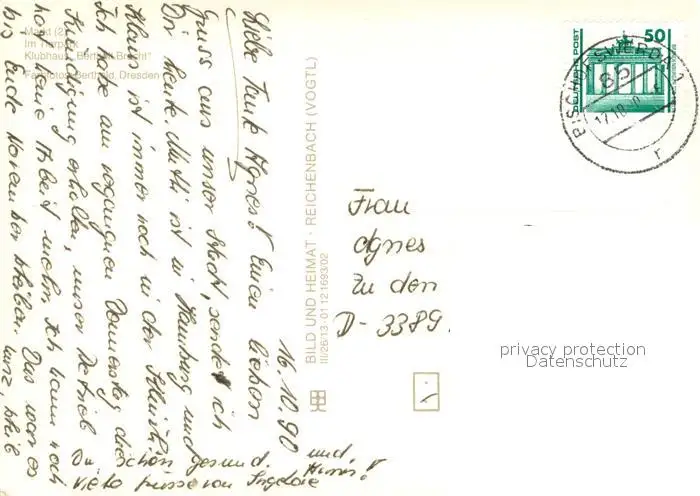 Markt (2)
Im Tierpark
Klubhaus „Bertolt Brecht"
Farbfotos: Berthold, Dresden
16.10.90
Liebe Tante Agnes! Einen lieben
Gruss aus unser Stadt, sendet ich
Dir heute. Mutti ist in Hamburg und
Klaus ist immer noch in der
Ich habe am vergangenen Donnerstag die
Kündigung erhalten, unser Betrieb
hat keine Arbeit mehr. Ich kann noch
bis Ende November bleiben. Das war es
kurz, bleib
Du schön gesund. und
Viele Grüsse von Ingelore
BILD UND HEIMAT · REICHENBACH (VOGTL)
III/26/13 · 01 12 1693/02
DEUTSCHE POST
50
BISCHOFSWERDA 1
85
17.10.90
r
Frau
Agnes
Zu den
D-3389.
privacy protection
Datenschutz